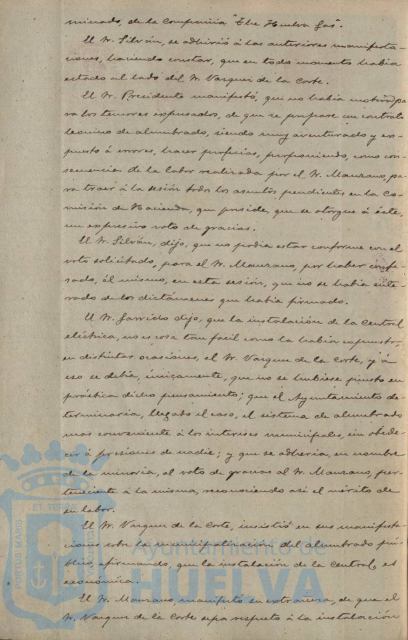 minado, de la Compañia "The Huelva Gas".
El Sr. Silván, se adhirió á las anteriores manifesta-
ciones, haciendo constar, que en todo momento habia
estado al lado del Sr. Vazquez de la Corte.
El Sr. Presidente manifestó, que no habia motivo pa-
ra los temores expresados, de que se prepare un contrato
leonino de alumbrado, siendo muy aventurado y ex-
puesto á errores, hacer profecias, proponiendo, como con-
secuencia de la labor realizada por el Sr. Manzano, pa-
ra traer á la sesión todos los asuntos pendientes, en la Co-
misión de Hacienda, que preside, que se otorgue á éste,
un expresivo voto de gracias.
El Sr. Silván, dijo, que no podia estar conforme con el
voto solicitado, para el Sr. Manzano, por haber confe-
sado, él mismo, en esta sesión, que no se habia ente-
rado de los dictámenes que habia firmado.
El Sr. Garrido dijo, que la instalación de la Central
eléctrica, no es cosa tan facil como la habia expuesto,
en distintas ocasiones, el Sr. Vazquez de la Corte, y á
eso se debia, únicamente, que no se hubiese puesto en
práctica dicho pensamiento; que el Ayuntamiento de-
terminaria, llegado el caso, el sistema de alumbrado
mas conveniente á los intereses municipales, sin obede-
cer á presiones de nadie; y que se adheria, en nombre
de la minoria, al voto de gracias al Sr. Manzano, per-
teneciente á la misma, reconociendo asi el mérito de
su labor.
El Sr. Vazquez de la Corte, insistió en sus manifesta-
ciones sobre la municipalización del alumbrado pú-
blico, afirmando, que la instalación de la Central, es
económica.
El Sr. Manzano, manifestó su extrañeza, de que el
Sr. Vazquez de la Corte sepa respecto á la instalación
PORTUS MARIS
Ayuntamiento de
HUELVA